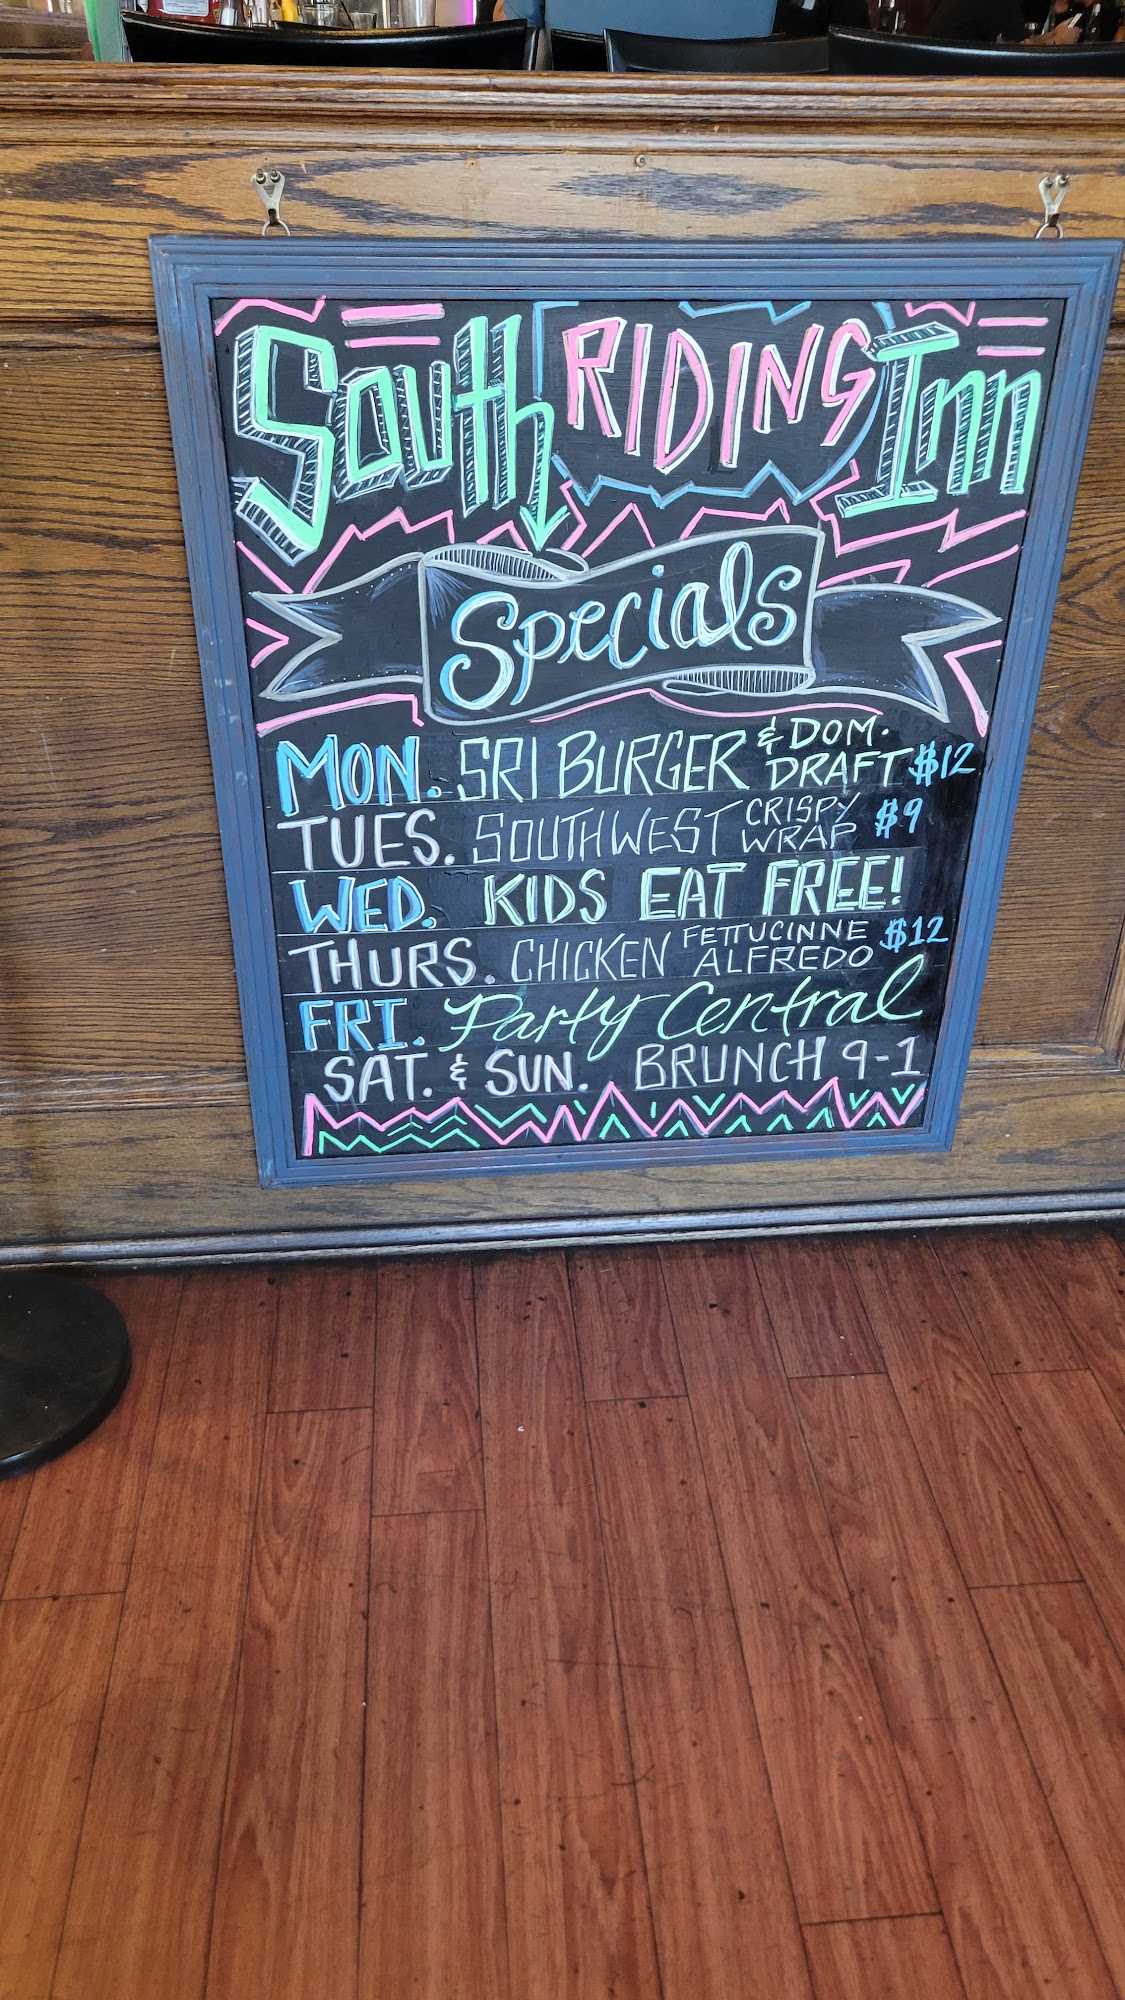 South RIDING Inn
Specials
MON. SRI BURGER & DOM. DRAFT $12
TUES. SOUTHWEST CRISPY WRAP $9
WED. KIDS EAT FREE!
THURS. CHICKEN FETTUCINNE ALFREDO $12
FRI. Party Central
SAT. & SUN. BRUNCH 9-1